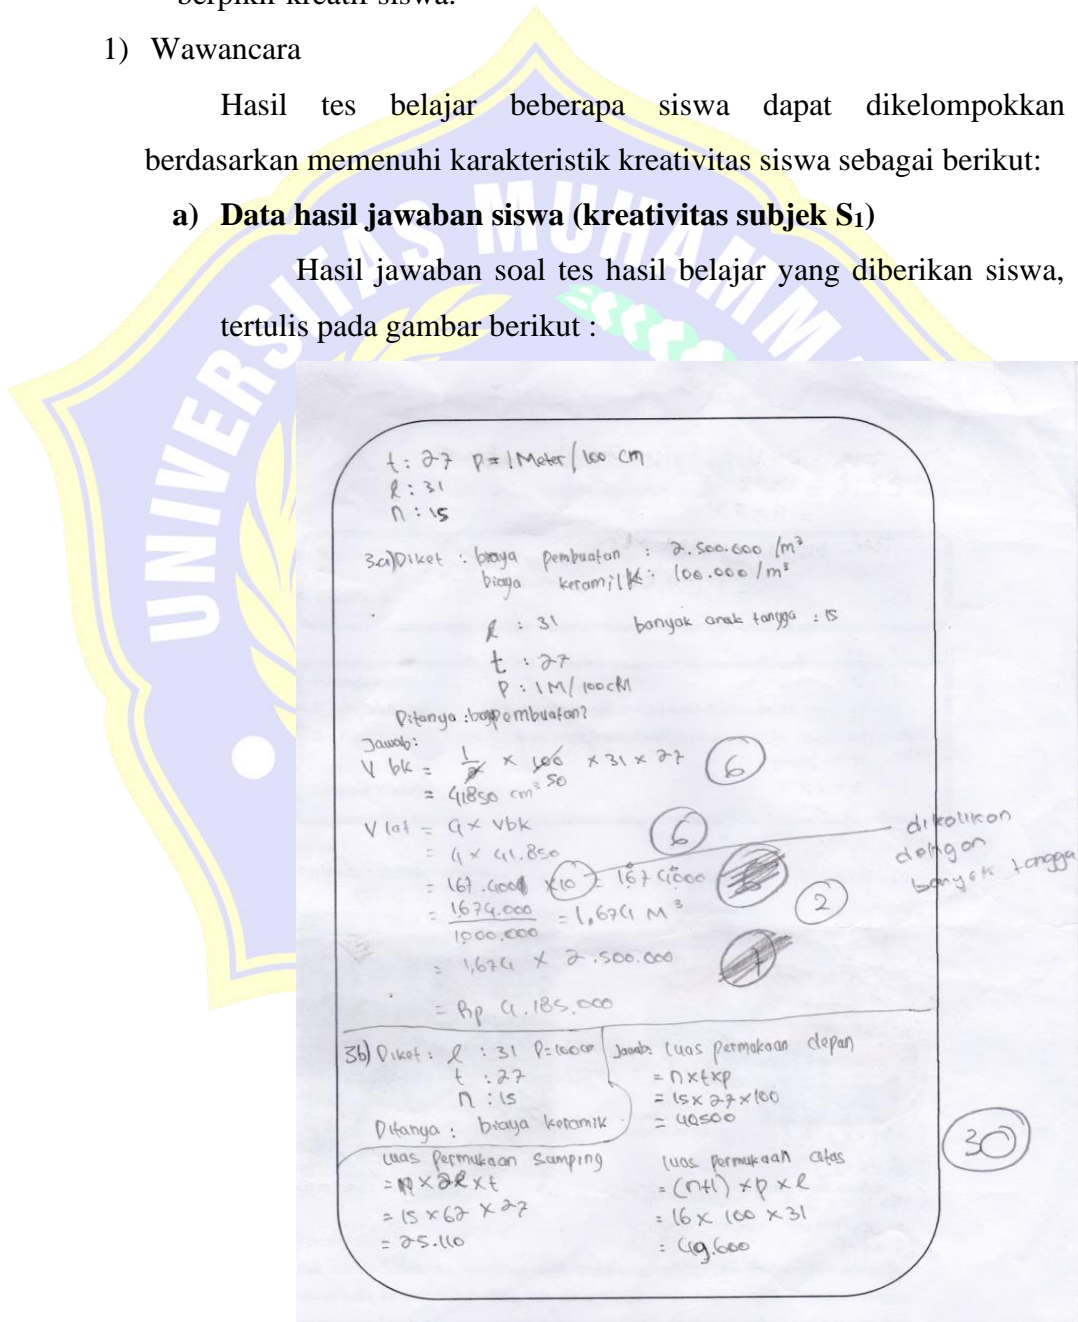 berpikir kreatif siswa.
1) Wawancara
Hasil tes belajar beberapa siswa dapat dikelompokkan
berdasarkan memenuhi karakteristik kreativitas siswa sebagai berikut:
a) Data hasil jawaban siswa (kreativitas subjek S₁)
Hasil jawaban soal tes hasil belajar yang diberikan siswa,
tertulis pada gambar berikut :
UNIVERSITAS MUHAMMA
t : 27 P = 1 Meter / 100 cm
l : 31
n : 15
3.a) Diket : biaya pembuatan : 2.500.000 /m³
biaya keramik : 100.000 /m³
l : 31 banyak anak tangga : 15
t : 27
P : 1 M / 100 cM
Ditanya : pembuatan?
Jawab :
V bk = 1/2 × 100 × 31 × 27 6
50
= 41850 cm³
V tot = 4 × Vbk 6
= 4 × 41.850
= 167.400 × 10 = 1674000
dikalikan
dengan
banyak tangga
= 1.674.000 / 1.000.000 = 1,674 M³ 2
= 1,674 × 2.500.000
= Rp 4.185.000
3b) Diket : l : 31 P = 100 cm
t : 27
n : 15
Ditanya : biaya keramik
Jawab : Luas permukaan depan
= n × t × p
= 15 × 27 × 100
= 40500
30
Luas permukaan samping
= n × 2l × t
= 15 × 62 × 27
= 25.110
Luas permukaan atas
= (n+1) × p × l
= 16 × 100 × 31
= 49.600